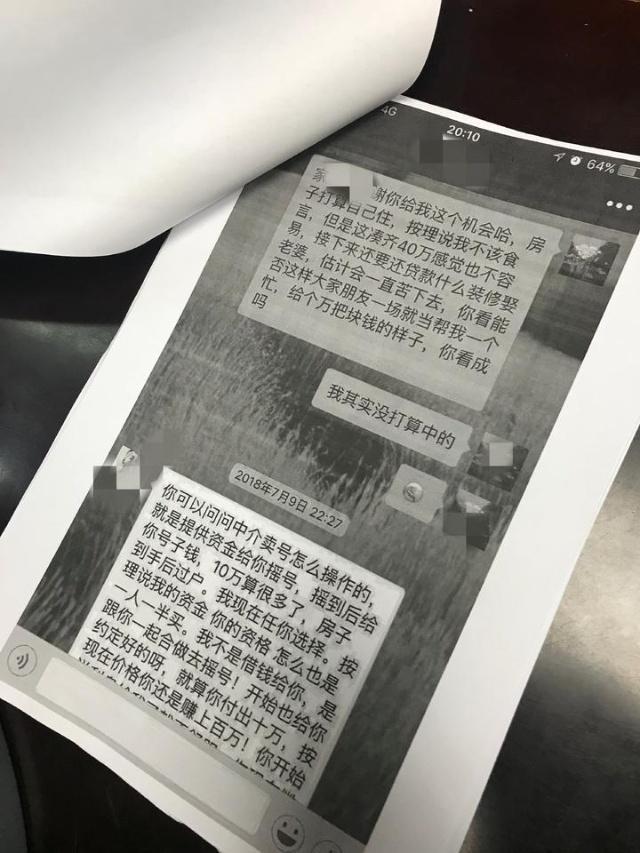 4G
20:10
64%
家
谢你给我这个机会哈，房
子打算自己住，按理说我不该食
言，但是这凑齐40万感觉也不容
易，接下来还要还贷款什么装修娶
老婆，估计会一直苦下去，你看能
否这样大家朋友一场就当帮我一个
忙，给个万把块钱的样子，你看成
吗
我其实没打算中的
2018年7月9日 22:27
你可以问问中介卖号怎么操作的，
就是提供资金给你摇号，摇到后给
你号子钱，10万算很多了，房子
到手后过户。我现在任你选择。按
理说我的资金 你的资格 怎么也是
一人一半买。我不是借钱给你，是
跟你一起合做去摇号！开始也给你
约定好的呀，就算你付出十万，按
现在价格你还是赚上百万！你开始